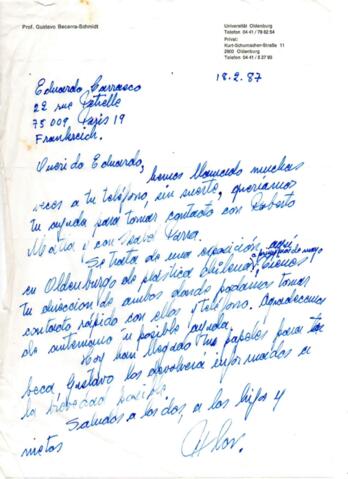 Prof. Gustavo Becerra-Schmidt
Universität Oldenburg
Telefon 04 41 / 798 2 54
Privat:
Kurt-Schumacher-Straße 11
2900 Oldenburg
Telefon 04 41 / 5 27 93
18.2.87
Eduardo Carrasco
22 rue
75009 Paris 19
Frankreich.
Querido Eduardo,
hemos llamado muchas
veces a tu teléfono, sin suerte, queríamos
tu ayuda para tomar contacto con Roberto
Matta y con Isabel Parra.
Se trata de una exposición, aquí
en Oldenburg de plástica chilena, a principios de mayo
tienes
tu dirección de ambos donde podamos tomar
contacto rápido con ellos y teléfono. Agradecemos
de antemano tu posible ayuda.
Hoy han llegado los papeles para tu
beca, Gustavo los devolverá informados a
la brevedad posible.
Saludos a los dos, a los hijos y
nietos